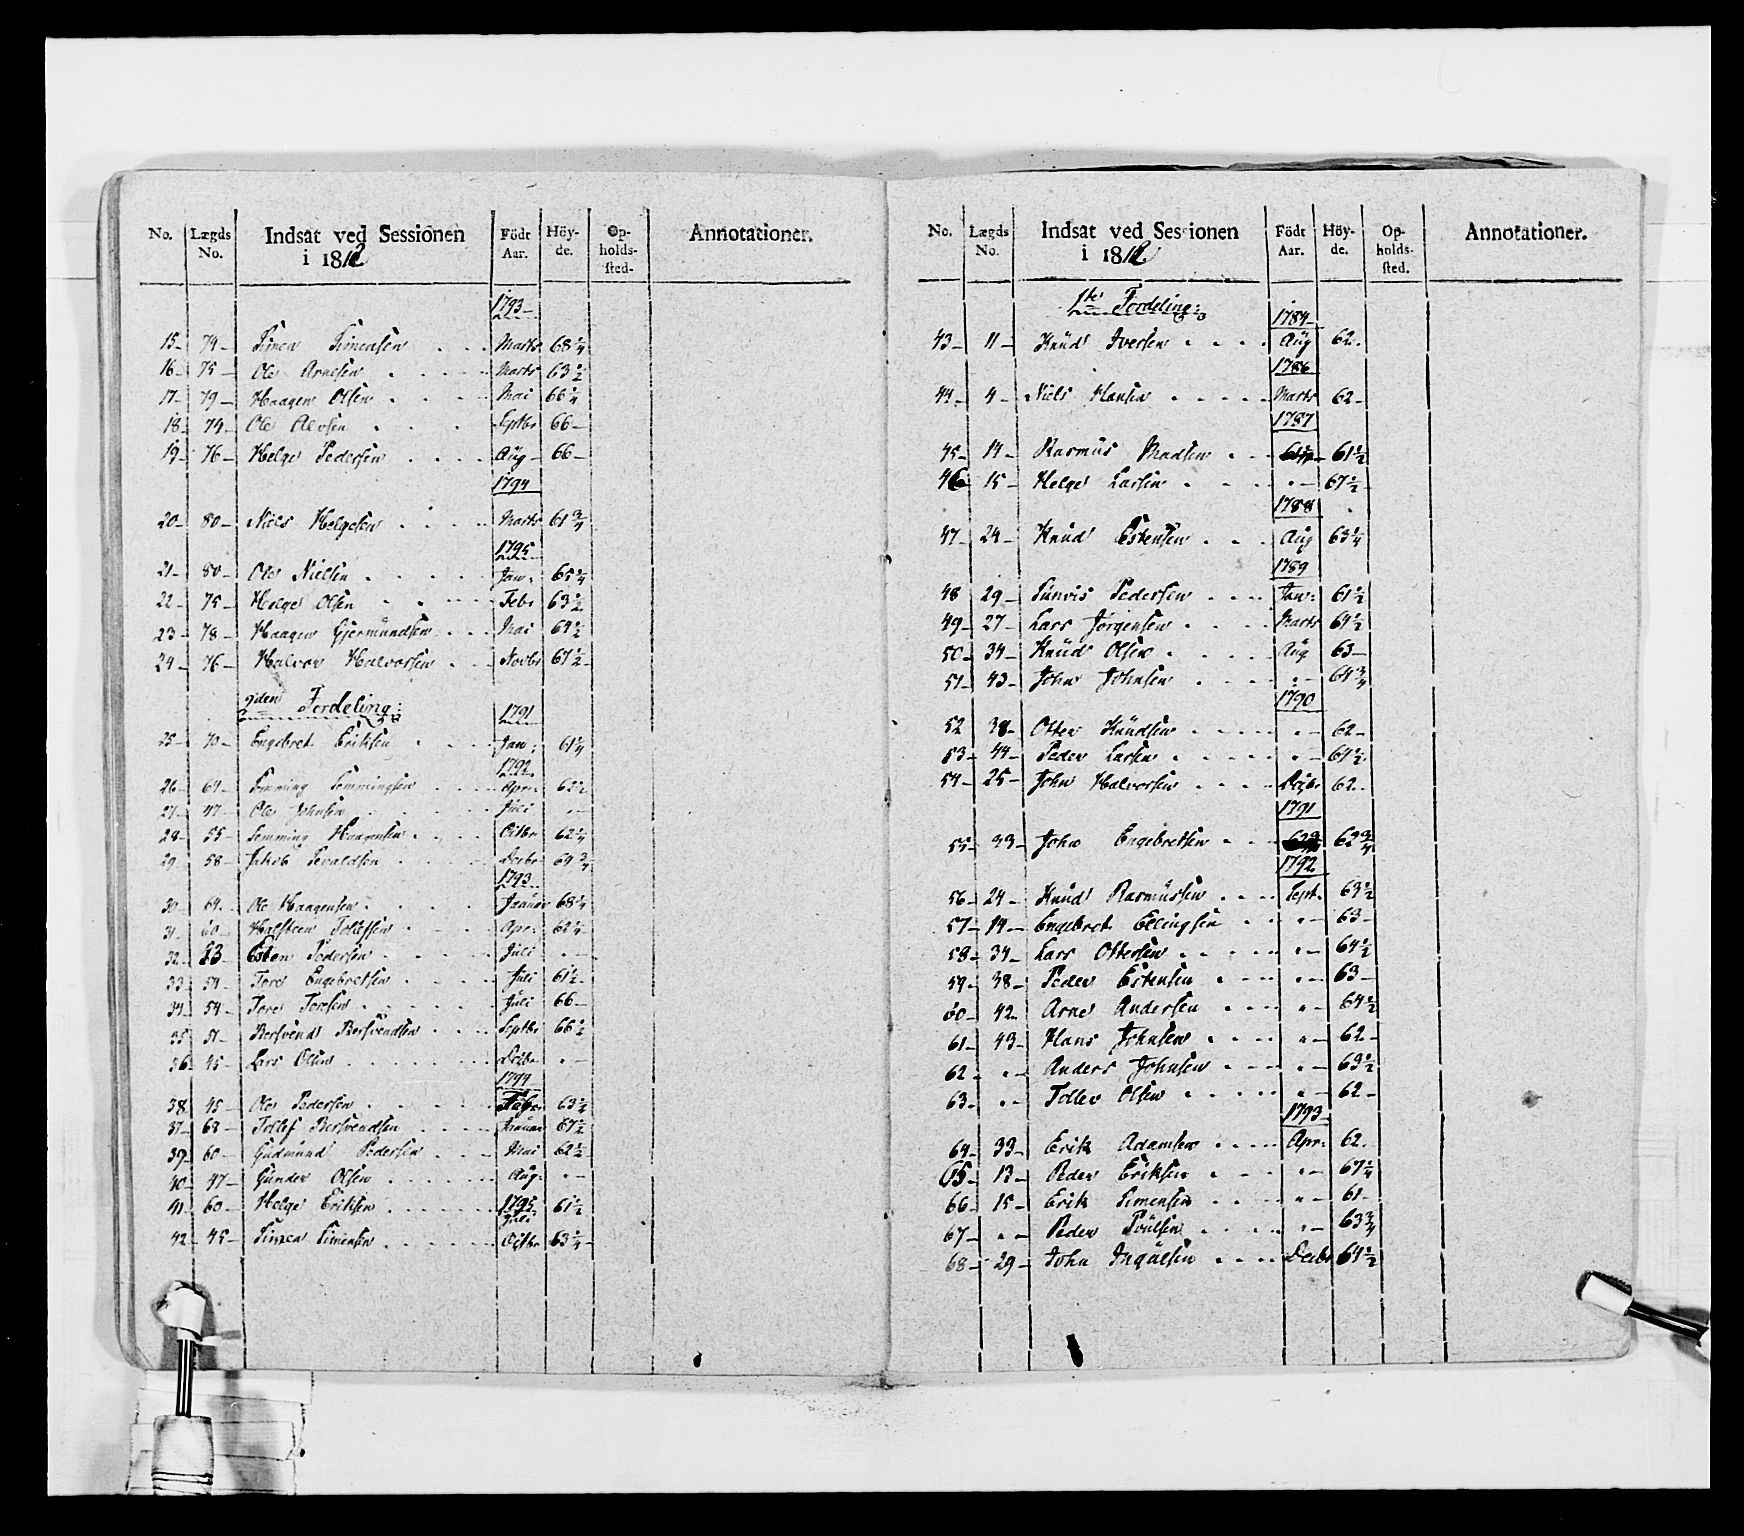 No. Lægds No. Indsat ved Sessionen i 1812 Födt Aar. Höyde. Opholdssted. Annotationer.
1793
15 74 Simen Simensen Marts 68 1/4
16 75 Ole Arnesen Marts 63 1/2
17 79 Haagen Olsen Mai 66 1/4
18 74 Ole Alvsen Septbr 66
19 76 Helge Pedersen Aug 66
1794
20 80 Niels Helgesen Marts 61 3/4
1795
21 80 Ole Nielsen Jan: 65 1/4
22 75 Helge Olsen Febr 63 1/2
23 78 Haagen Gjermundsen Mai 64 1/2
24 76 Halvor Halvorsen Novbr 67 1/2
2den Fordeling:
1791
25 70 Engebret Eriksen Jan: 61 1/4
1792
26 64 Semming Semmingsen Apr: 61 1/2
27 47 Ole Johnsen Juli " –
28 55 Semming Haagensen Octbr 62 1/4
29 58 Jakob Sevaldsen Decbr 64 3/4
1793
30 64 Ole Haagensen Januar 68 1/4
31 60 Halsteen Tollefsen Apr: 62 1/4
32 53 Esten Pedersen Juli " –
33 54 Tore Engebretsen Juli 61 1/2
34 54 Tore Toresen Juli 66
35 51 Bersvend Bersvendsen Septbr 66 1/2
36 45 Lars Olsen Decbr " –
1794
38 45 Ole Pedersen Febr 63 1/2
37 68 Tollef Bersvendsen Januar 67 1/2
39 60 Gudmund Pedersen Mai 62 1/2
40 47 Gunder Olsen Aug: " –
1795
41 60 Helge Eriksen Juli 61 1/2
42 45 Simen Simensen Octbr 63 1/4
No. Lægds No. Indsat ved Sessionen i 1812 Födt Aar. Höyde. Opholdssted. Annotationer.
1te Fordeling:
1784
43 11 Knud Iversen Aug 62
1786
44 4 Niels Hansen Marts 62
1787
45 14 Rasmus Madsen 61 1/2
46 15 Helge Larsen " – 67 1/2
1788
47 24 Knud Estensen Aug 63 1/4
1789
48 29 Pedersen Jan: 61 1/2
49 27 Lars Jørgensen Marts 64 1/2
50 34 Knud Olsen Aug 63
51 43 John Johnsen " – 64 3/4
1790
52 38 Otter Knudsen " – 62
53 44 Peder Larsen " – 64 1/2
54 25 John Halvorsen Decbr 62
1791
55 33 John Engebretsen 62 3/4
1792
56 24 Knud Rasmussen Sept. 63 1/2
57 14 Engebret Ellingsen " – 63
58 34 Lars Ottersen " – 64 1/2
59 38 Peder Estensen " – 63
60 42 Arne Andersen " – 64 1/2
61 43 Hans Johnsen " – 62
62 " – Anders Johnsen " – 63 1/2
63 " – Toller Olsen " – 62
1793
64 33 Erik Adamsen Apr: 62
65 13 Peder Eriksen " – 67 1/4
66 15 Erik Simensen " – 61
67 " – Peder Poulsen " – 63 3/4
68 29 John Ingulsen Decbr 64 1/2